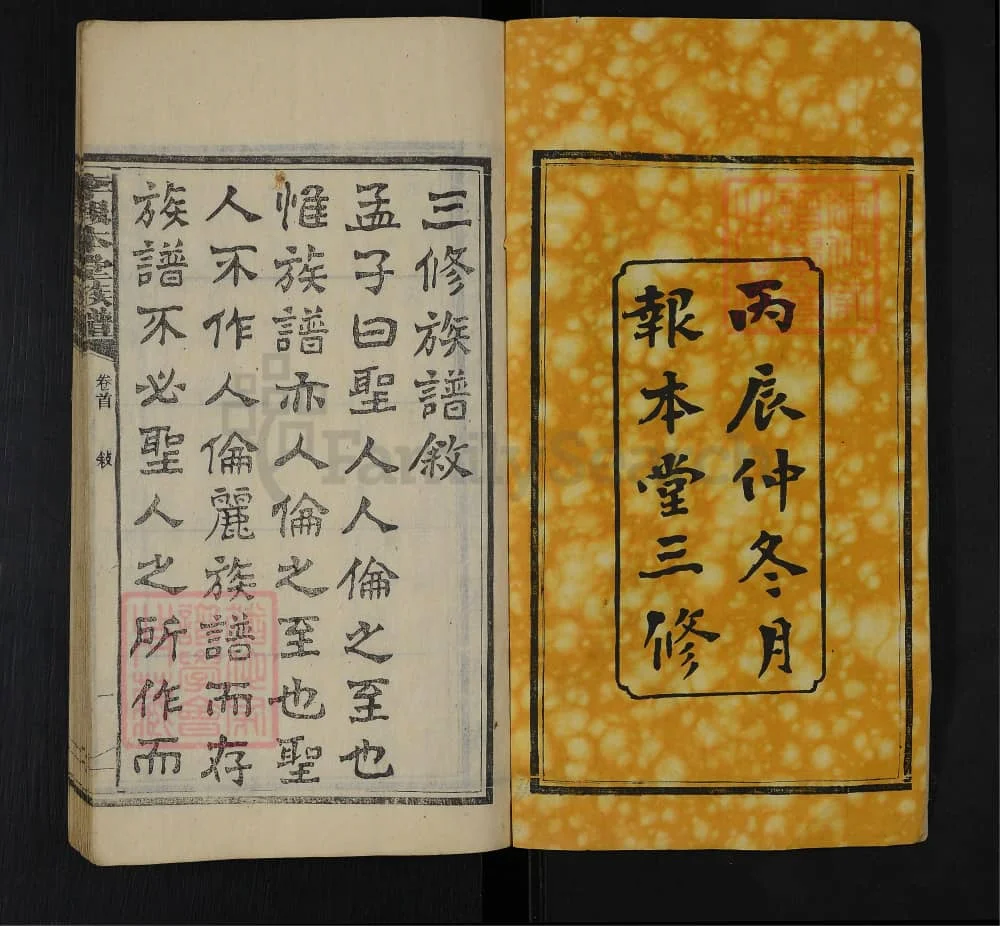 丙辰仲冬月
報本堂三修
三修族譜敘
孟子曰聖人人倫之至也
惟族譜亦人倫之至也聖
人不作人倫麗族譜而存
族譜不必聖人之所作而
本堂族譜
卷首
敍
一
FamilySearch